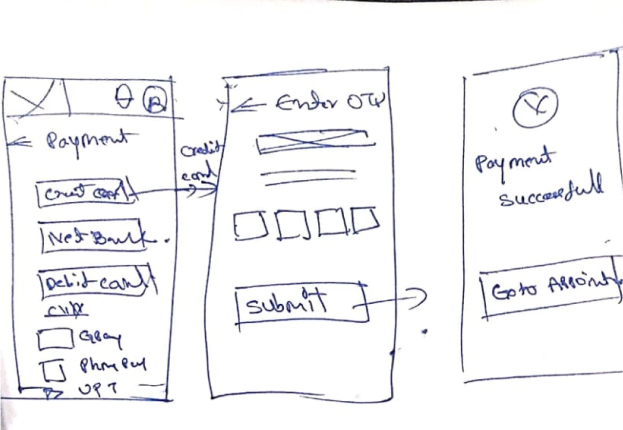 Payment
Credit card
Net Bank
Debit card
Gpay
PhonePay
UPI
Credit
card
Enter OTP
Submit
Payment
Successfull
Goto